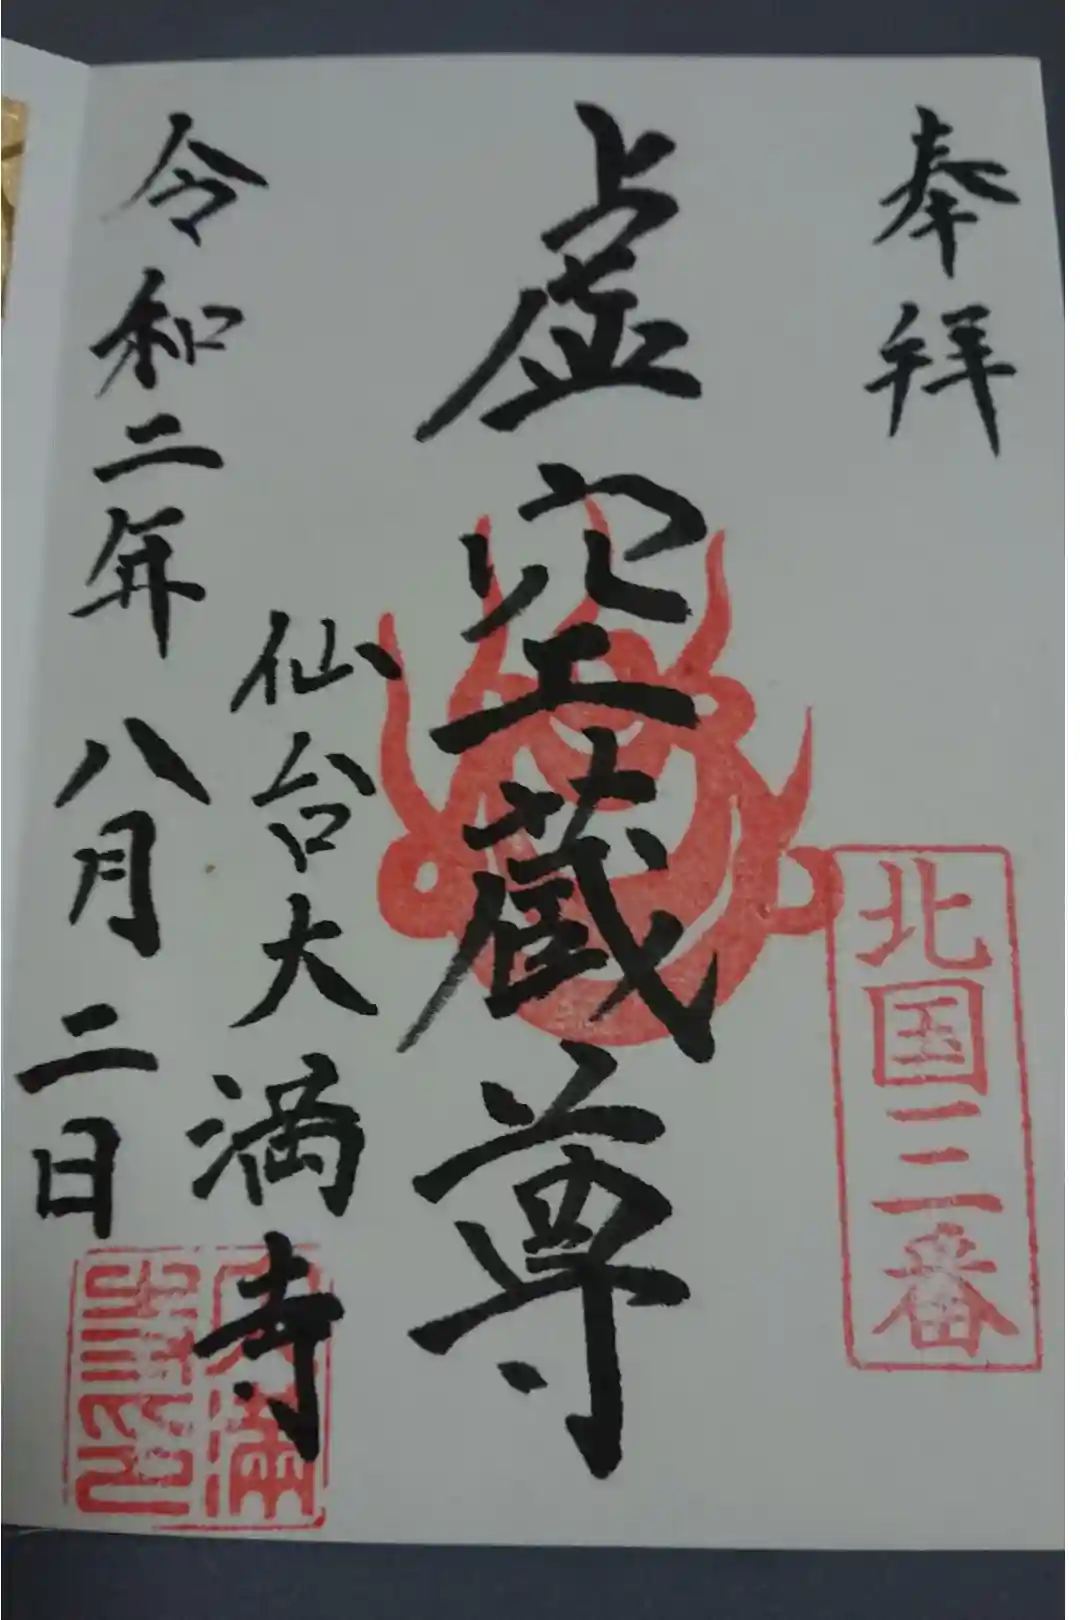 奉拝
北国三番
虚空蔵尊
仙台大満寺
令和二年八月二日
大満
寺印